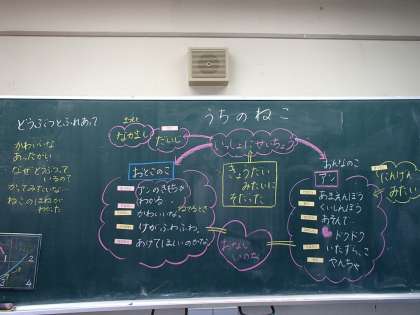 うちのねこ
どうぶつとふれあって
かわいいな
あったかい
なぜどうぶつって
いるの?
かってみたいな…
ねこのほねが
わかった
なかまし
だいじ
いっしょにせいちょう
おとこのこ
アンのきもちが
わかる
かわいいな。
ねてるとき
けがふわふわ。
あけてほしいのかな。
きょうだい
みたいに
そだった。
おなじ
いのち
おんなのこ
アン
あまえんぼう
くいしんぼう
あそんで
ドクドク
いたずらっこ
やんちゃ
にんげん
みたい